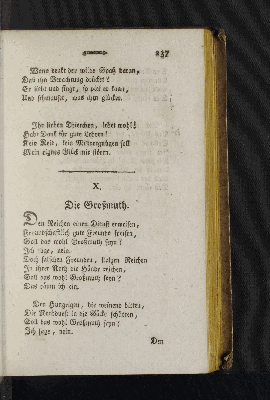 237
Wann denkt der wilde Spatz daran,
Daß ihn Verachtung drücket!
Er liebt und singt, so viel er kann,
Und schmauset, was ihm glücket.
Ihr lieben Thierchen, lebet wohl!
Habt Dank für gute Lehren!
Kein Neid, kein Mißvergnügen soll
Mein eignes Glück mir stören.
X.
Die Großmuth.
Den Reichen einen Dienst erweisen,
Freundschaftlich gute Freunde speisen,
Soll das wohl Großmuth seyn?
Ich sage, nein.
Doch falschen Freunden, stolzen Reichen
In ihrer Noth die Hände reichen,
Soll das wohl Großmuth seyn?
Das räum ich ein.
Den Hungrigen, die weinend bitten,
Die Nothdurft in die Säcke schütten,
Soll das wohl Großmuth seyn?
Ich sage, nein.
Den